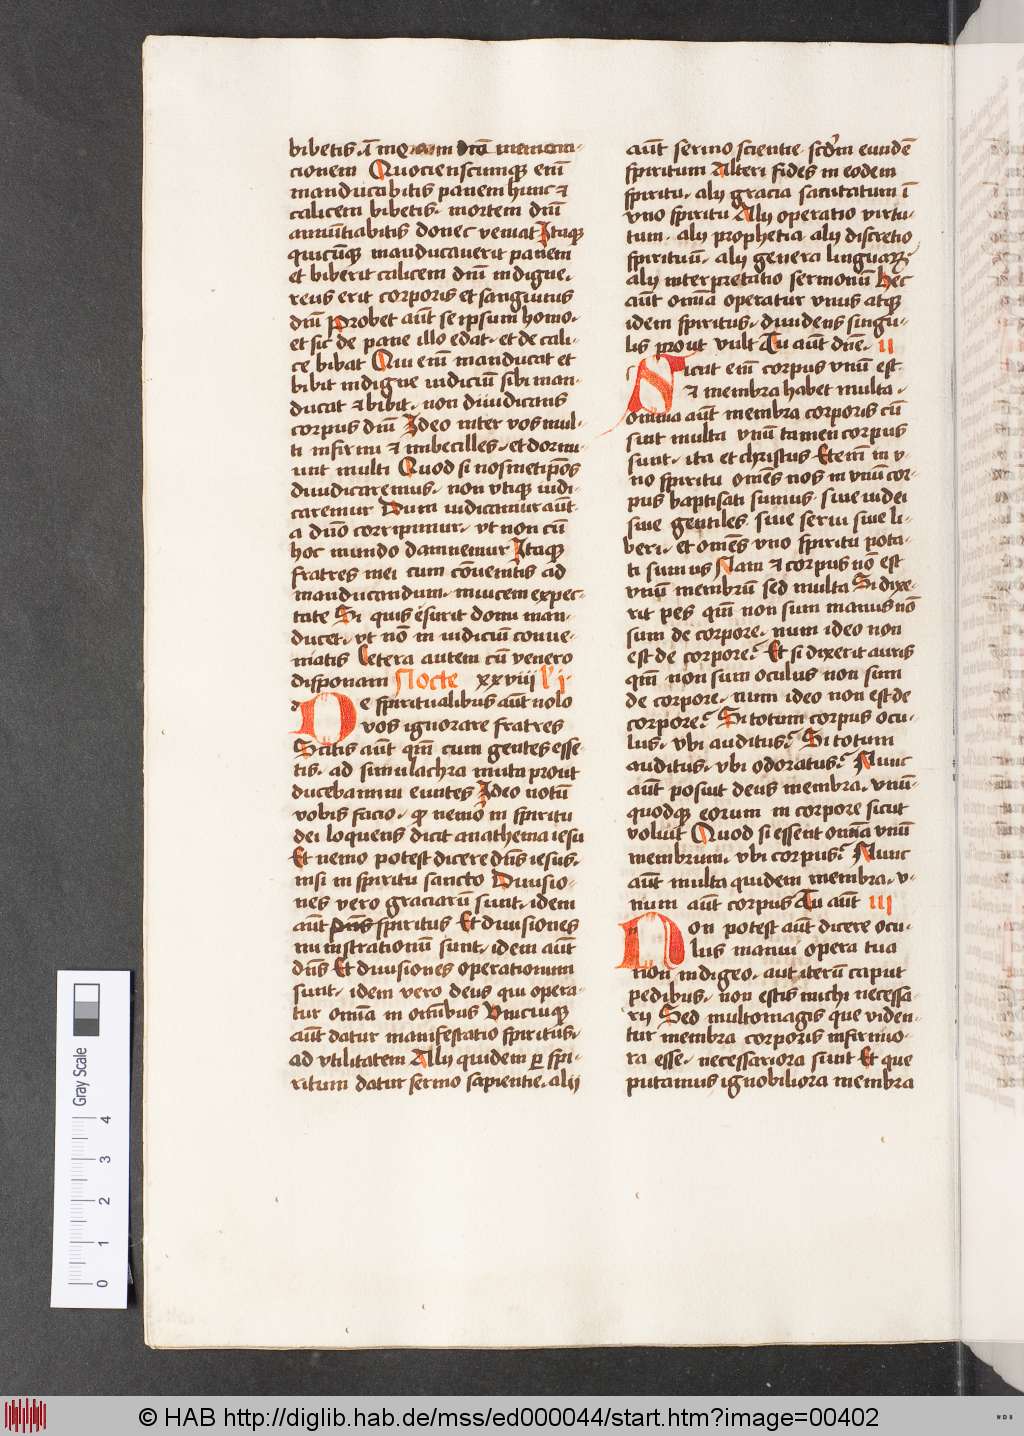 bibetis. ī meam dñi memora-
cionem Quociensc̄umqꝫ enī
manducabitis panem hunc ⁊
calicem bibetis. mortem dn̄i
annūtiabitis donec veniat Itaqꝫ
quicūqꝫ manducauerit panem
et biberit calicem dn̄i indigne.
reus erit corporis et sanguinis
dn̄i Probet aūt se ipsum homo.
et sic de pane illo edat. et de cali-
ce bibat Qui enī manducat et
bibit indigne iudiciū sibi man-
ducat ⁊ bibit. non diiudicans
corpus dn̄i Ideo inter vos mul-
ti infirmi ⁊ imbecilles. et dormi-
unt multi Quod si nosmetip̄os
diiudicaremus. non vtiqꝫ iudi-
caremur Dum iudicamur aūt
a dn̄o corripimur. vt non cū
hoc mundo damnemur Itaqꝫ
fratres mei cum cōuenitis ad
manducandum. inuicem expec-
tate Si quis esurit domi man-
ducet. vt nō in iudiciū conue-
niatis Cetera autem cū venero
disponam Nocte xxviii l' i
De spiritualibus aūt nolo
vos ignorare fratres
Scitis aūt qm̄ cum gentes esse-
tis. ad simulachra muta prout
ducebamini euntes Ideo notū
vobis facio. ꝙ nemo in spiritu
dei loquens dicit anathema iesu
Et nemo potest dicere dn̄s iesus.
nisi in spiritu sancto Diuisio-
nes vero graciarū sunt. idem
aūt dn̄s spiritus Et diuisiones
ministrationū sunt. idem aūt
dn̄s Et diuisiones operationum
sunt. idem vero deus qui opera-
tur om̄ia in om̄ibus Vnicuiqꝫ
aūt datur manifestatio spiritus.
ad vtilitatem Alij quidem ꝑ spi-
ritum datur sermo sapientie. alii
aūt sermo scientie. scd̄m eundē
spiritum Alteri fides in eodem
spiritu. alij gracia sanitatum ī
vno spiritu Alij operatio virtu-
tum. alij prophetia. alij discretio
spirituū. alij genera linguaꝝ
alij interpretatio sermonū Hec
aūt om̄ia operatur vnus atqꝫ
idem spiritus. diuidens singu-
lis prout vult Tu aūt dn̄e. ii
Sicut enī corpus vnū est
⁊ membra habet multa.
omnia aūt membra corporis cū
sint multa vnū tamen corpus
sunt. ita et christus Etenī in v-
no spiritu om̄es nos in vnū cor-
pus baptisati sumus. siue iudei
siue gentiles siue serui siue li-
beri. et om̄es vno spiritu pota-
ti sumus Nam ⁊ corpus nō est
vnū membrū sed multa Si dixe-
rit pes qm̄ non sum manus nō
sum de corpore. num ideo non
est de corpore? Et si dixerit auris
qm̄ non sum oculus non sum
de corpore. num ideo non est de
corpore? Si totum corpus ocu-
lus. vbi auditus? Si totum
auditus. vbi odoratus? Nunc
aūt posuit deus membra. vnū-
quodqꝫ eorum in corpore sicut
voluit Quod si essent om̄ia vnū
membrum. vbi corpus? Nunc
aūt multa quidem membra. v-
num aūt corpus Tu aūt iii
Non potest aūt dicere ocu-
lus manui opera tua
non indigeo. aut iterū caput
pedibus. non estis michi necessa-
rij Sed multomagis que viden-
tur membra corporis infirmio-
ra esse. necessariora sunt Et que
putamus ignobiliora membra
Gray Scale
0 1 2 3 4
© HAB http://diglib.hab.de/mss/ed000044/start.htm?image=00402